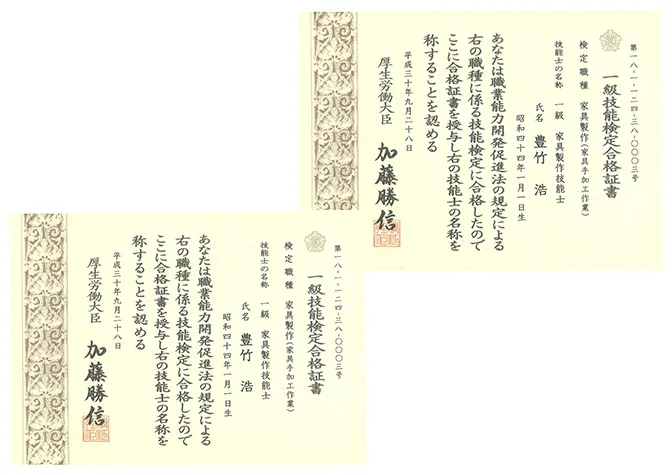 第一八-一-一二四-三八-〇〇〇三号
一級技能検定合格証書
検定職種 家具製作(家具手加工作業)
技能士の名称 一級 家具製作技能士
氏名 豊竹 浩
昭和四十四年一月一日生
あなたは職業能力開発促進法の規定による
右の職種に係る技能検定に合格したので
ここに合格証書を授与し右の技能士の名称を
称することを認める
平成三十年九月二十八日
厚生労働大臣 加藤勝信
第一八-一-一二四-三八-〇〇〇三号
一級技能検定合格証書
検定職種 家具製作(家具手加工作業)
技能士の名称 一級 家具製作技能士
氏名 豊竹 浩
昭和四十四年一月一日生
あなたは職業能力開発促進法の規定による
右の職種に係る技能検定に合格したので
ここに合格証書を授与し右の技能士の名称を
称することを認める
平成三十年九月二十八日
厚生労働大臣 加藤勝信